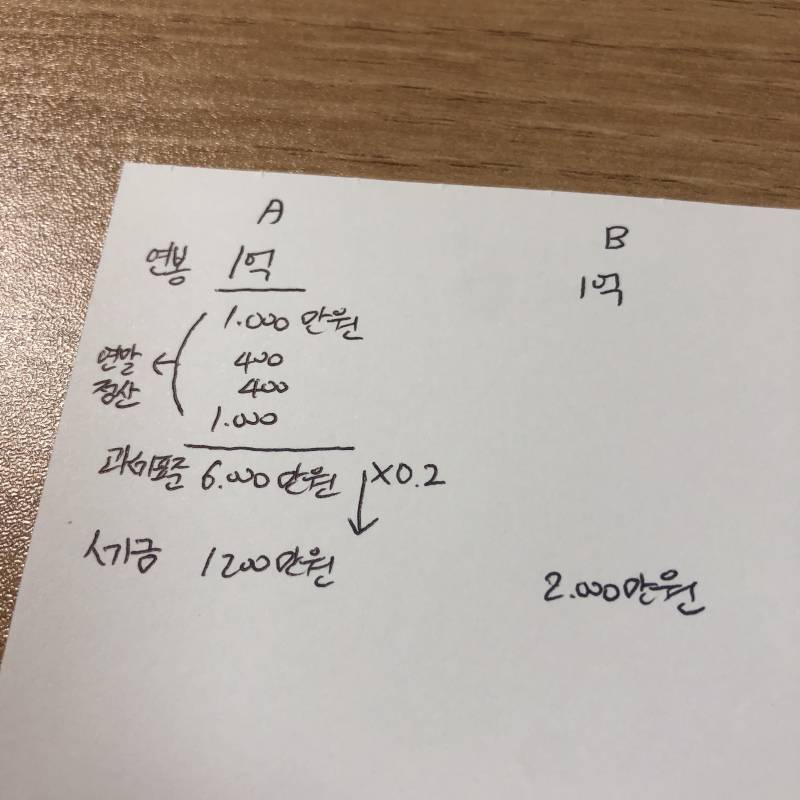 A
B
연봉 1억
1억
1.000 만원
400
연말
정산
400
1.000
과세표준 6.000만원 X0.2
세금 1200만원
2.000만원